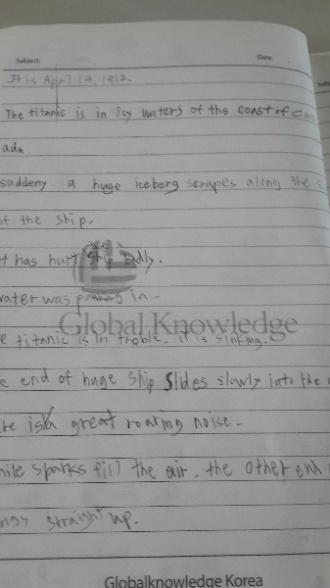 Subject: Date.
It is April 14, 1912.
The titanic is in icy waters of the coast of
ada
suddeny a huge iceberg scrapes along the s
of the ship.
t has hurt the ship badly.
water was pouring in -
Global Knowledge
e titanic is in troble. it is sinking.
e end of huge ship slides slowly into the
re is a great roaring noise.
hile sparks fill the air. the other enh
straight up.
Globalknowledge Korea